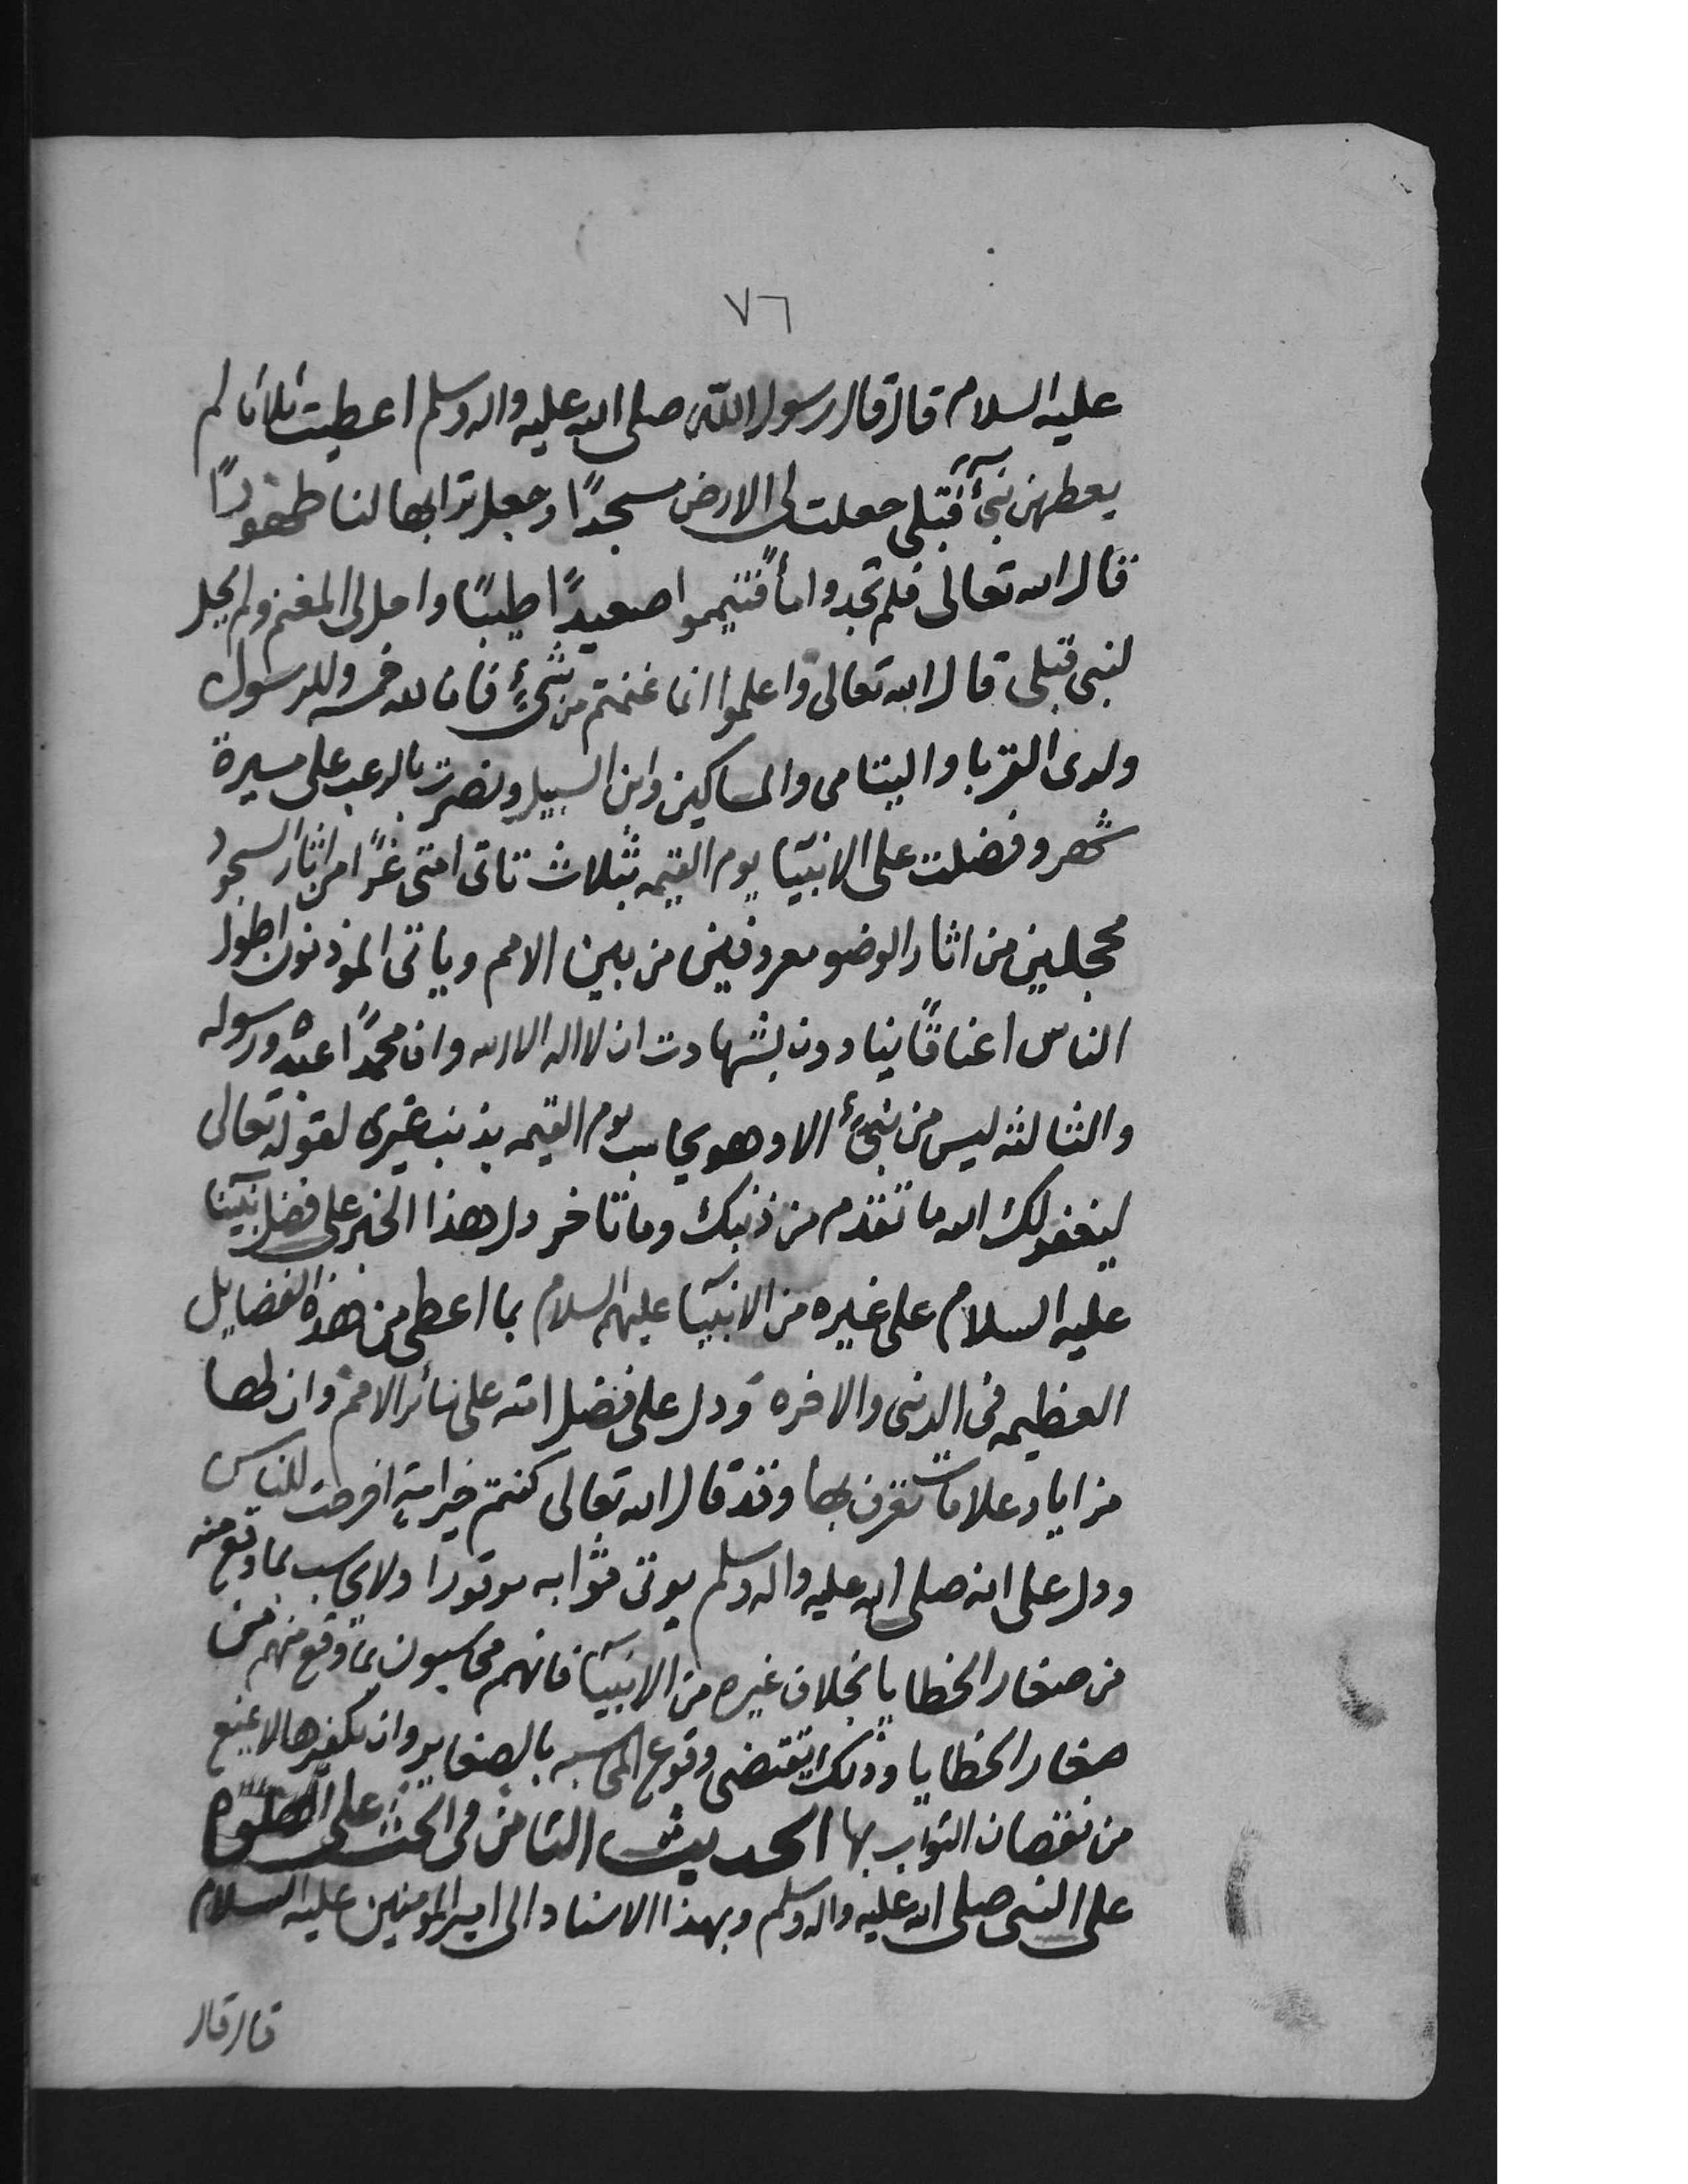 ٧٦
عليه السلام قال قال رسول الله صلى الله عليه واله وسلم اعطيت ثلاثا لم
يعطهن نبئ قبلى جعلت لى الارض مسجدًا وجعل ترابها لنا طهورًا
قال الله تعالى فلم تجدوا مأ فتيمموا صعيدًا طيبًا واحل لى المغنم ولم يحل
لنبى قبلى قال الله تعالى واعلموا انما غنمتم من شئٍ فان لله خمسه وللرسول
ولدى القربا واليتامى والمساكين وابن السبيل ونصرت بالرعب على مسيرة
شهر وفضلت على الانبيآ يوم القيمه بثلاث تاتى امتى غرًا من اثار السجود
محجلين من اثار الوضو معروفين من بين الامم وياتى الموذنون اطول
الناس اعناقًا ينادون بشهادت ان لا اله الا الله وان محمدًا عبده ورسوله
والثالثه ليس من نبئ الا وهو يحاسب يوم القيمه بذنب غيرى لقوله تعالى
ليغفر لك الله ما تقدم من ذنبك وما تاخر دل هذا الخبر على فضل نبيآنا
عليه السلام على غيره من الانبيآ عليهم السلام بما اعطى من هذه الفضايل
العظيمه فى الدنى والاخره ودل على فضل امته على سائر الامم وان لها
مزايا وعلامات تعرف بها وقد قال الله تعالى كنتم خير امةٍ اخرجت للناس
ودل على انه صلى الله عليه واله وسلم يوتى ثوابه موقورا ولا يحاسب بما وقع منه
من صغار الخطايا بخلاف غيره من الانبيآ فانهم محاسبون بما وقع منهم من
صغار الخطايا وذلك يقتضى وقوع المحاسبه بالصغاير وان تكفيرها لا يمنع
من نقصان الثواب بها الحديث الثامن فى الحث على الصلوه
على النبى صلى الله عليه واله وسلم وبهذا الاسناد الى امير المومنين عليه السلام
قال قال